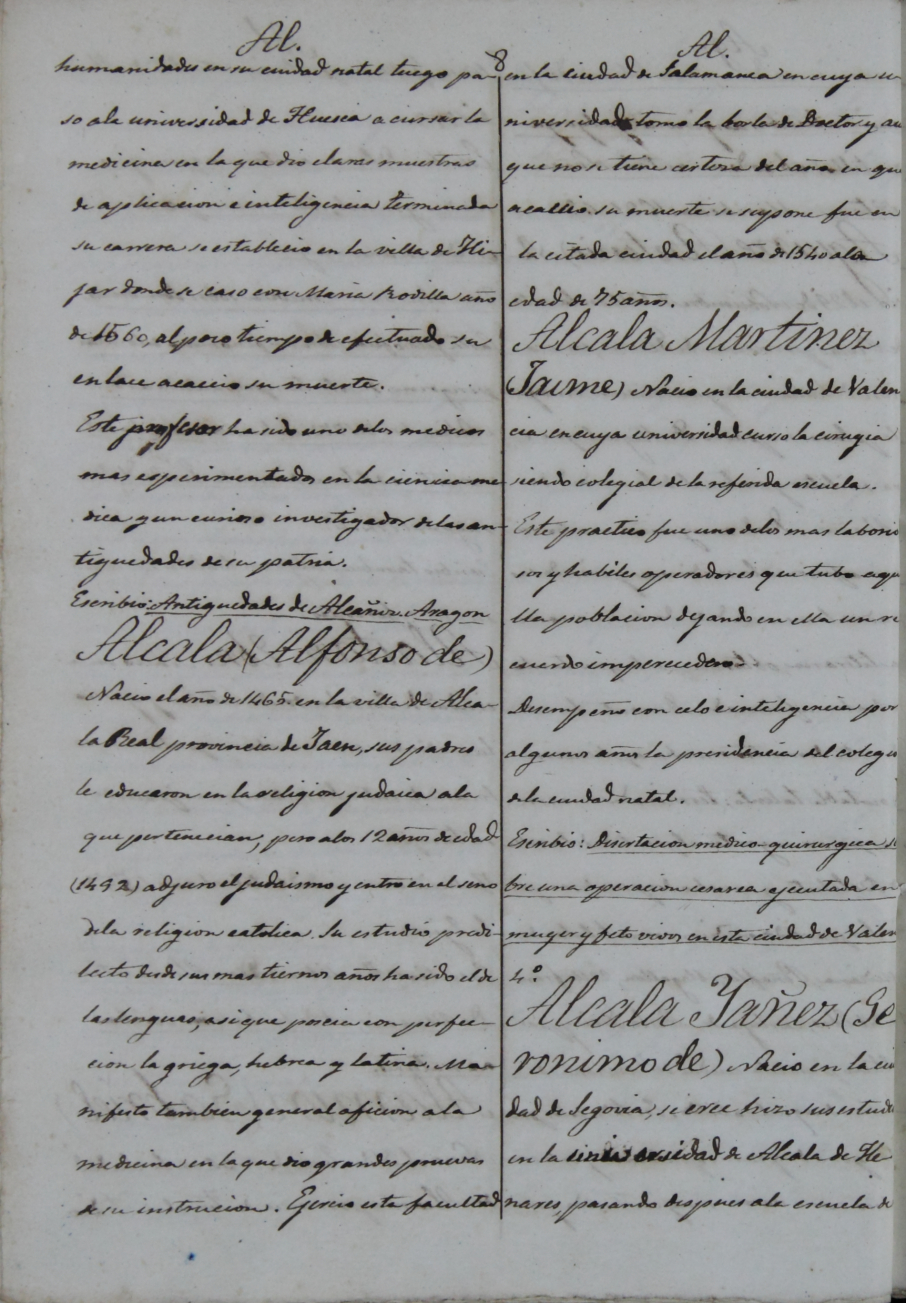 Al.
8
humanidades en su ciudad natal luego pa-
so a la universidad de Huesca a cursar la
medicina en la que dio claras muestras
de aplicacion e inteligencia terminada
su carrera se establecio en la villa de Hi-
jar donde se caso con Maria Rodilla año
de 1560, al poco tiempo de efectuado su
enlace acaecio su muerte.
Este profesor ha sido uno delos medicos
mas esperimentados en la ciencia me-
dica y un curioso investigador de las an-
tiguedades de su patria.
Escribio: Antiguedades de Alcañiz. Aragon
Alcala (Alfonso de)
Nacio el año de 1465 en la villa de Alca-
la Real provincia de Jaen, sus padres
le educaron en la religion judaica a la
que pertenecian, pero alos 12 años de edad
(1492) adjuro el judaismo y entro en el seno
dela religion catolica. Su estudio predi-
lecto desde sus mas tiernos años ha sido el de
las lenguas, asi que poseia con perfec-
cion la griega, hebrea y latina. Ma-
nifesto tambien general aficion a la
medicina en la que dio grandes pruevas
de su instrucion. Ejercio esta facultad
Al.
en la ciudad de Salamanca en cuya u
niversidad tomo la borla de Doctor y au
que no se tiene certeza del año en que
acaecio su muerte se supone fue en
la citada ciudad el año de 1540 a la
edad de 75 años.
Alcala Martinez
(Jaime) Nacio en la ciudad de Valen
cia en cuya universidad curso la cirugia
siendo colegial de la referida escuela.
Este practico fue uno delos mas laborio
sos y habiles operadores que tubo aque
lla poblacion dejando en ella un re
cuerdo imperecedero.
Desempeño con celo e inteligencia por
algunos años la presidencia del colegio
de la ciudad natal.
Escribio: Disertacion medico-quirurgica so
bre una operacion cesarea ejecutada en
muger y feto vivos en esta ciudad de Valen
4º
Alcala Yañez (Ge
ronimo de) Nacio en la ciu
dad de Segovia, se cree hizo sus estudi
en la universidad de Alcala de He
nares, pasando despues a la escuela de